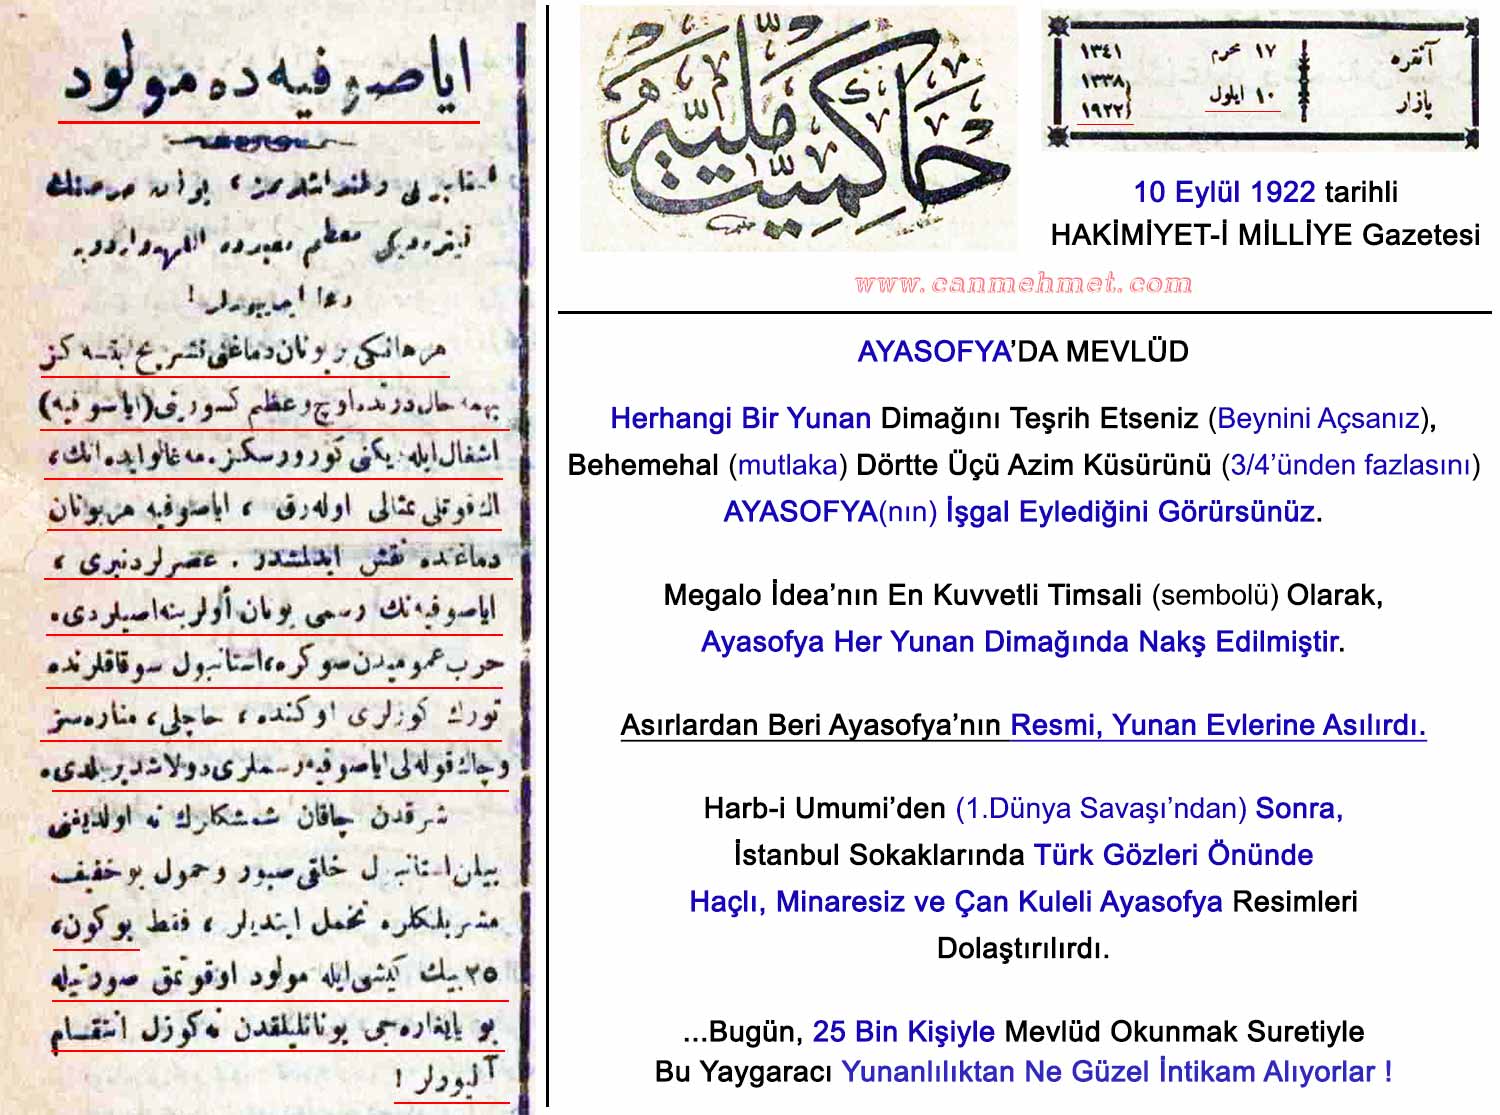 اياصوفيه ده مولود
استانبوللى وطنداشلرمز ، بو آن عرصه‌نك
معظم معبدنده اللهه واردويه
دعا ايديورلر !
هر هانكى ر يونان دماغنى تشريح ايتسه كز
بهمه حال درتده اوچ و عظيم كسورينى (اياصوفيه)
اشغال ايله ديكنى كورورسكز . مه غالو ايده انك ،
اك قوتلى تمثالى اوله رق ، اياصوفيه هر يونان
دماغنده نقش ايدلمشدر . عصرلردنبرى ،
اياصوفيه نك رسمى يونان أولرينه اصيليردى .
حرب عموميدن سوكره ، استانبول سوقاقلرنده
تورك كوزلرى اوكنده ، حاچلى ، مناره سز
و چاك قوله لى اياصوفيه رسملرى دولاشديريلدى .
شرقدن چاقان شمشكلرك نه اولديغنى
بيلن استانبول خلقى صبور و حمول بو خفيف
مشربلكلره تحمل ايتديلر ، فقط بوكون ،
٢٥ بيك كيشى ايله مولود اوقوتمق صورتيله
بو يايغاره جى يونانليلقدن نه كوزل انتقام
آليورلر !
حاكميت ملية
آنقره
١٧ محرم ١٣٤١
بازار
١٠ ايلول
١٣٣٨
١٩٢٢
10 Eylül 1922 tarihli
HAKİMİYET-İ MİLLİYE Gazetesi
www.canmehmet.com
AYASOFYA’DA MEVLÜD
Herhangi Bir Yunan Dimağını Teşrih Etseniz (Beynini Açsanız),
Behemehal (mutlaka) Dörtte Üçü Azim Küsürünü (3/4’ünden fazlasını)
AYASOFYA(nın) İşgal Eylediğini Görürsünüz.
Megalo İdea’nın En Kuvvetli Timsali (sembolü) Olarak,
Ayasofya Her Yunan Dimağında Nakş Edilmiştir.
Asırlardan Beri Ayasofya’nın Resmi, Yunan Evlerine Asılırdı.
Harb-i Umumi’den (1.Dünya Savaşı’ndan) Sonra,
İstanbul Sokaklarında Türk Gözleri Önünde
Haçlı, Minaresiz ve Çan Kuleli Ayasofya Resimleri
Dolaştırılırdı.
...Bugün, 25 Bin Kişiyle Mevlüd Okunmak Suretiyle
Bu Yaygaracı Yunanlılıktan Ne Güzel İntikam Alıyorlar !